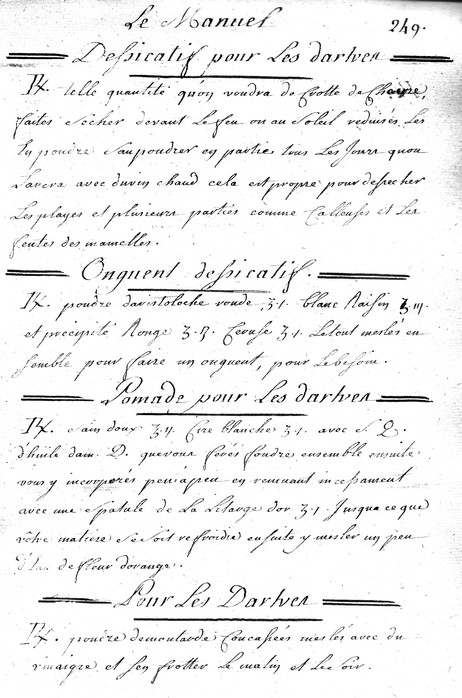 Le Manuel 249.
Dessicatif pour Les dartres
℞. telle quantité quon voudra de Crotte de
faites Sécher devant Le feu ou au Soleil reduisés Les
En poudre Saupoudrer en partie tous Les Jours quon
Lavera avec du vin chaud cela est propre pour dessecher
Les playes et plusieurs parties comme Calleuses et Les
fentes des mamelles.
Onguent dessicatif.
℞. poudre daristoloche ronde, ʒ.1. blanc Raisin
et précipité Rouge Ceruse ʒ.1. Le tout meslés en
semble pour faire un onguent, pour Le besoin.
Pomade pour Les dartres
℞. Sain doux Cire blanche ʒ.1. avec S. Q.
d'huile dam. D. que vous ferés fondre ensemble ensuite
vous y incorporés peu à peu en remuant incessament
avec une Spatule de La Litarge dor ʒ.1. Jusqua ce que
vôtre matiere Se Soit refroidie ensuite y mesler un peu
d'Eau de fleur dorange.
Pour Les Dartres
℞. poudre demoutarde Concassées meslés avec du
vinaigre et Sen frotter Le matin et Le Soir.